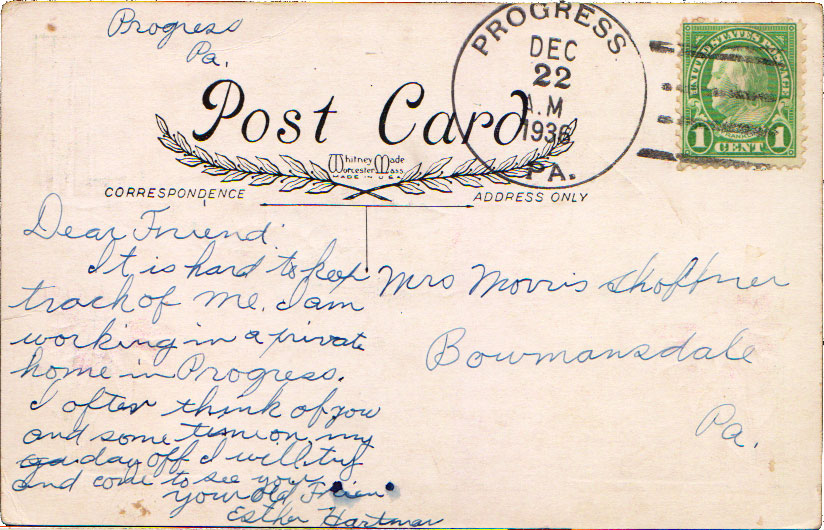 Progress
Pa.
PROGRESS
DEC
22
A.M
1936
PA.
UNITED STATES POSTAGE
FRANKLIN
1 CENT 1
Post Card
Whitney Made
Worcester Mass
MADE IN U.S.A.
CORRESPONDENCE
ADDRESS ONLY
Dear Friend
It is hard to keep
track of me. I am
working in a private
home in Progress.
I often think of you
and some time on my
day off I will try
and come to see you
your old Frien
Esther Hartman
Mrs Morris Shoffner
Bowmansdale
Pa.